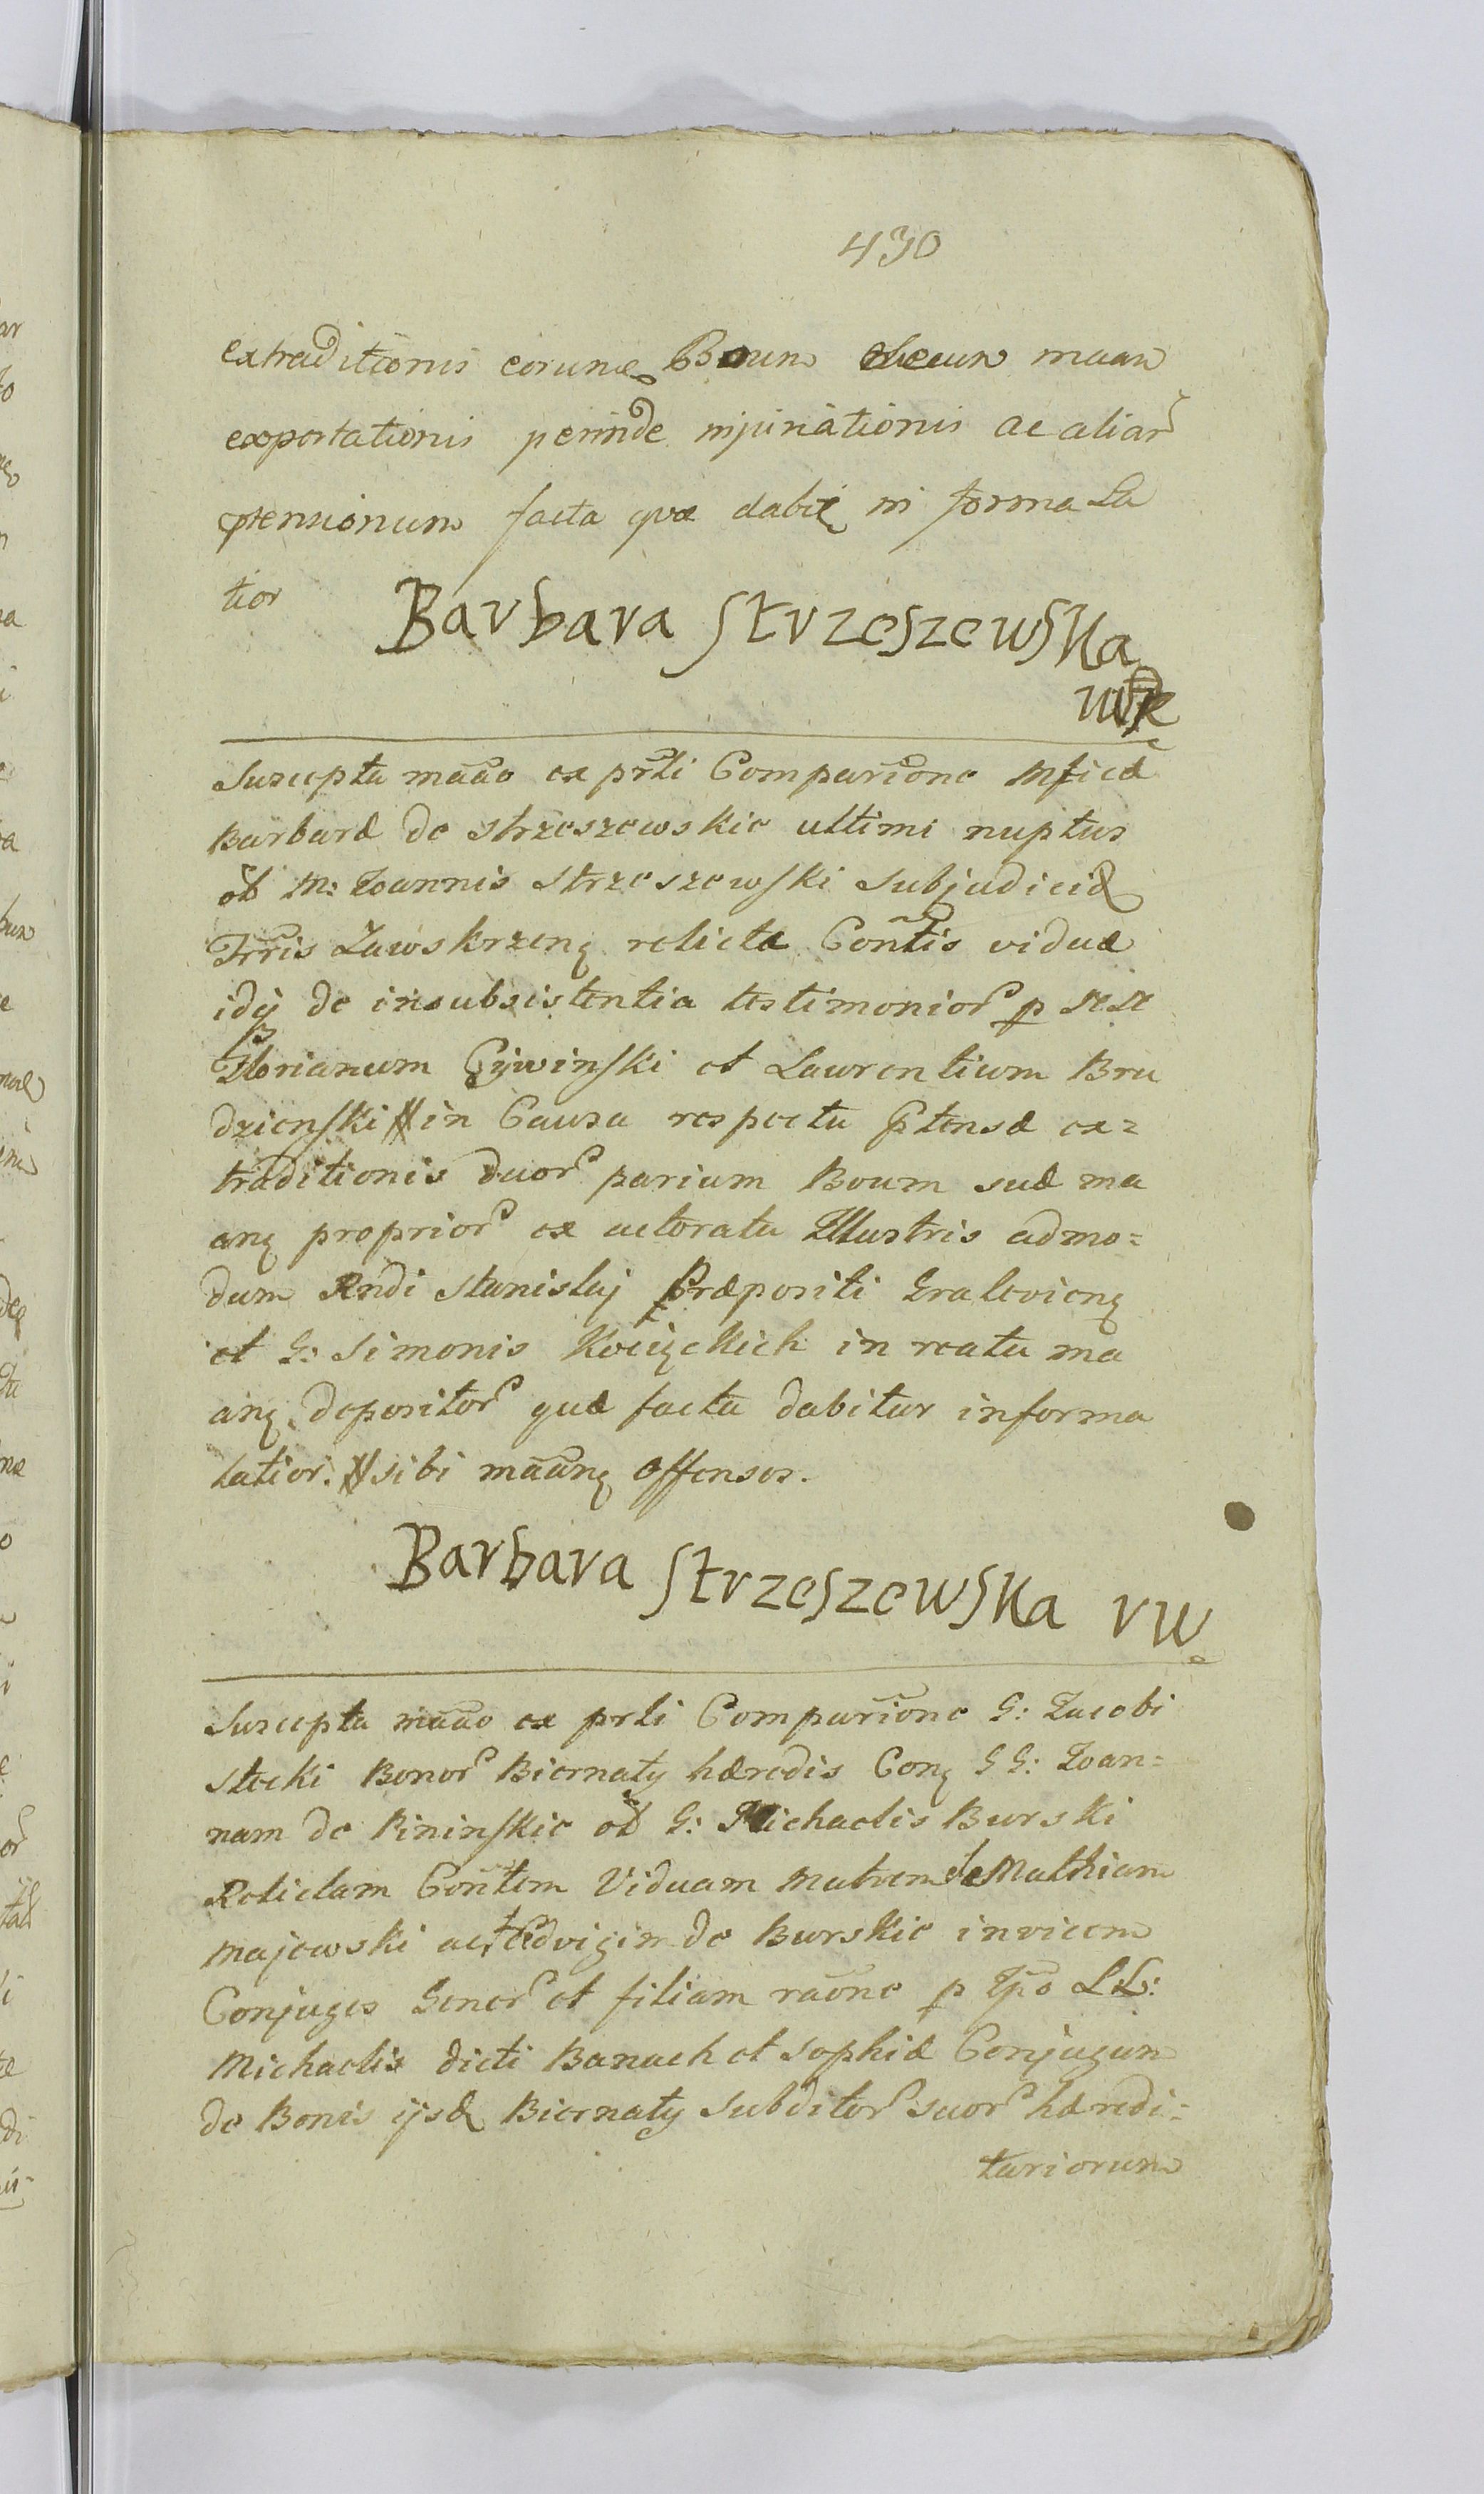 430
extraditionis eorundem Boum maan
exportationis perinde injuriationis ac aliar
ptensionum facta quæ dabit in forma La
tior Barbara Strzeszewska
Suscepta māāo ex prsti Compariōne Mficæ
Barbaræ de Strzeszewskie ultimi nuptus
ōb M: Joannis Strzeszewski Subjudicis
Trris Zawskrzenę relictæ Contlis viduæ
idq de insubsistentia testimonior p NN
Florianum Cywinski et Laurentium Bru
dzienski # in Causa respectu ptensæ ex=
traditionis duor parium Boum suæ ma
anę proprior ex actoratu Illustris admo=
dum Rndi Stanislaj Præpositi Gralevienę
et G: Simonis Kocięckich in reatu ma
anę depositor quæ facta dabitur in forma
latior. # sibi māānę offensos.
Barbara Strzeszewska rw
Suscepta māāo ex prsti Compariōne G: Jacobi
Stecki Bonor Biernaty hæredis Conę GG: Joan=
nam de Pininskie ōb G: Michaelis Burski
Relictam Contlem Viduam Matrem de Mathiam
Majewski ac Hedvigim de Burskie invicem
Conjuges Gener et filiam raōne p Ipso LL:
Michaelis dicti Banach et Sophiæ Conjugum
de Bonis ijsd Biernaty Subditor suor hæredi=
tariorum